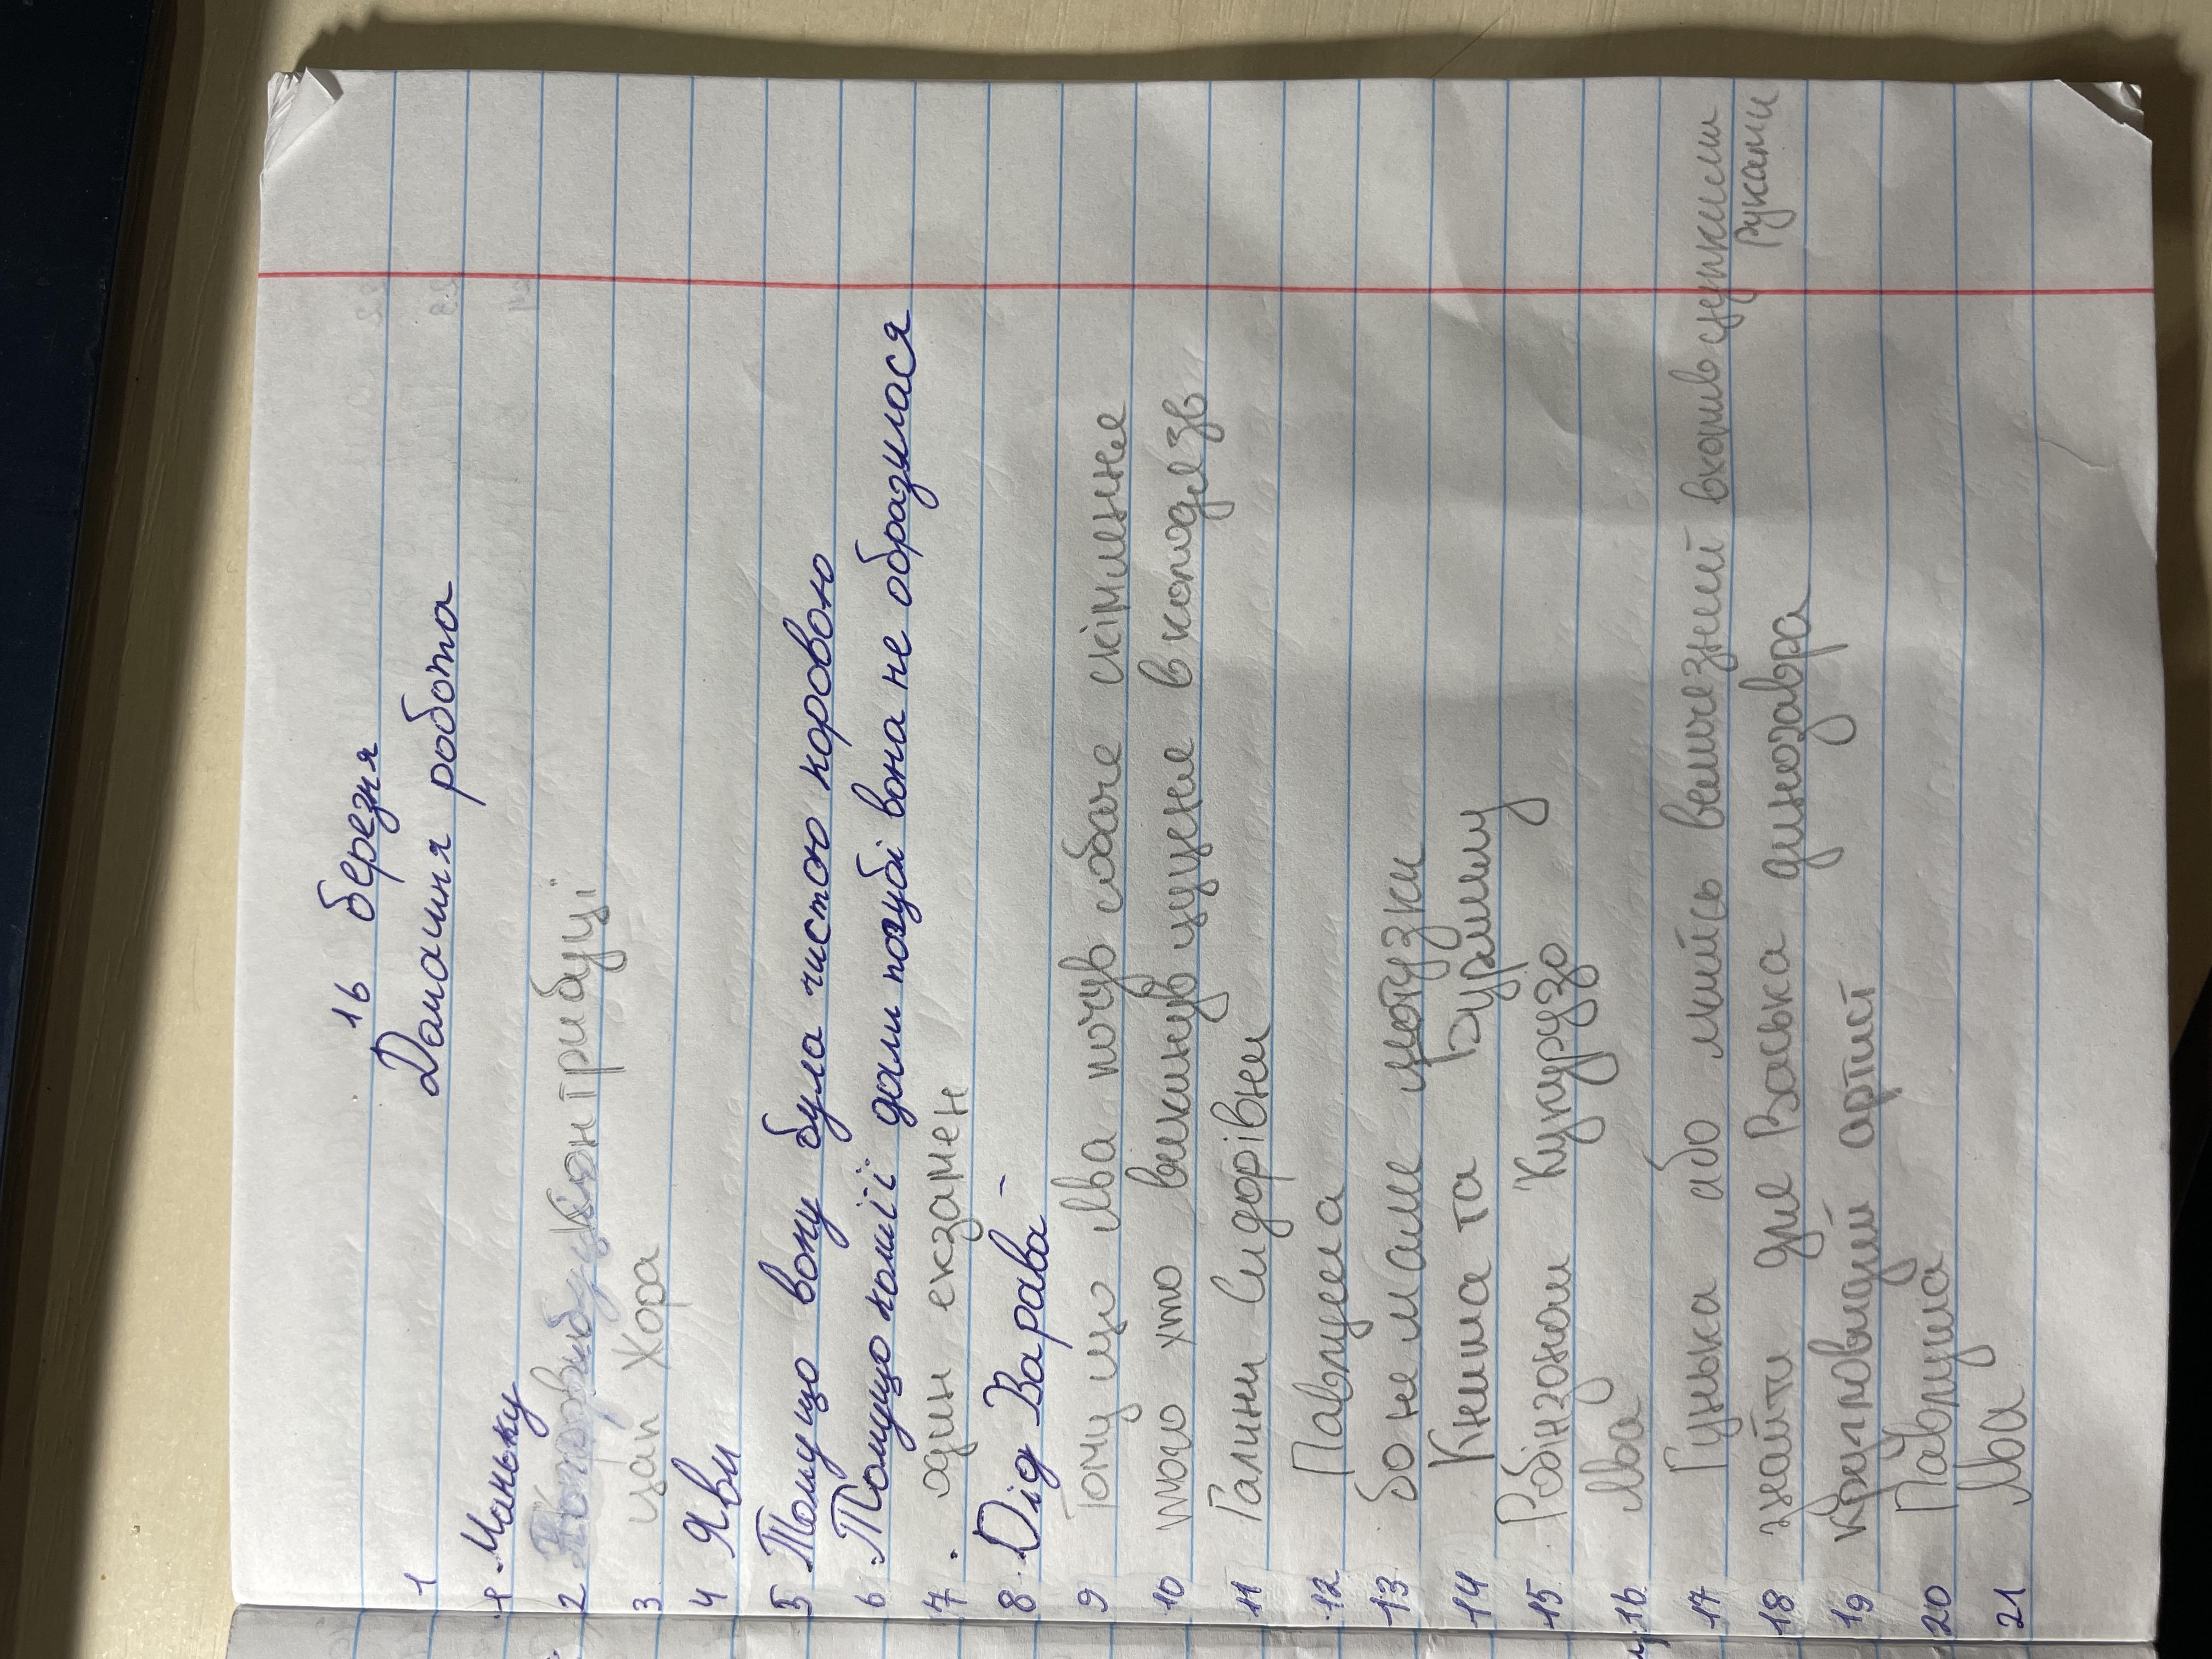 16 березня
Домашня робота
1
1. Маньку
2 контрибуції
3 цап Жора
4 Яви
5 Тому що вону була чистою коровою
6. Томущо коли її дали погубі вона не образилася
7. один екзамен
8. Дід Варава -
9 Тому що Ява почув собаче скімлення
10 того хто викинув цуценя в колодязь
11 Галини Сидорівни
12 Павлуша
13 бо не мали мотузки
14 Книша та Бурмилу
15 Робінзон Кукурузо
16 Ява
17 Гунька або якийсь величезний вхопив цупкими руками
18 знайти дне Васька динозавра
19 кобидголови артист
20 Павлуша
21 Ява